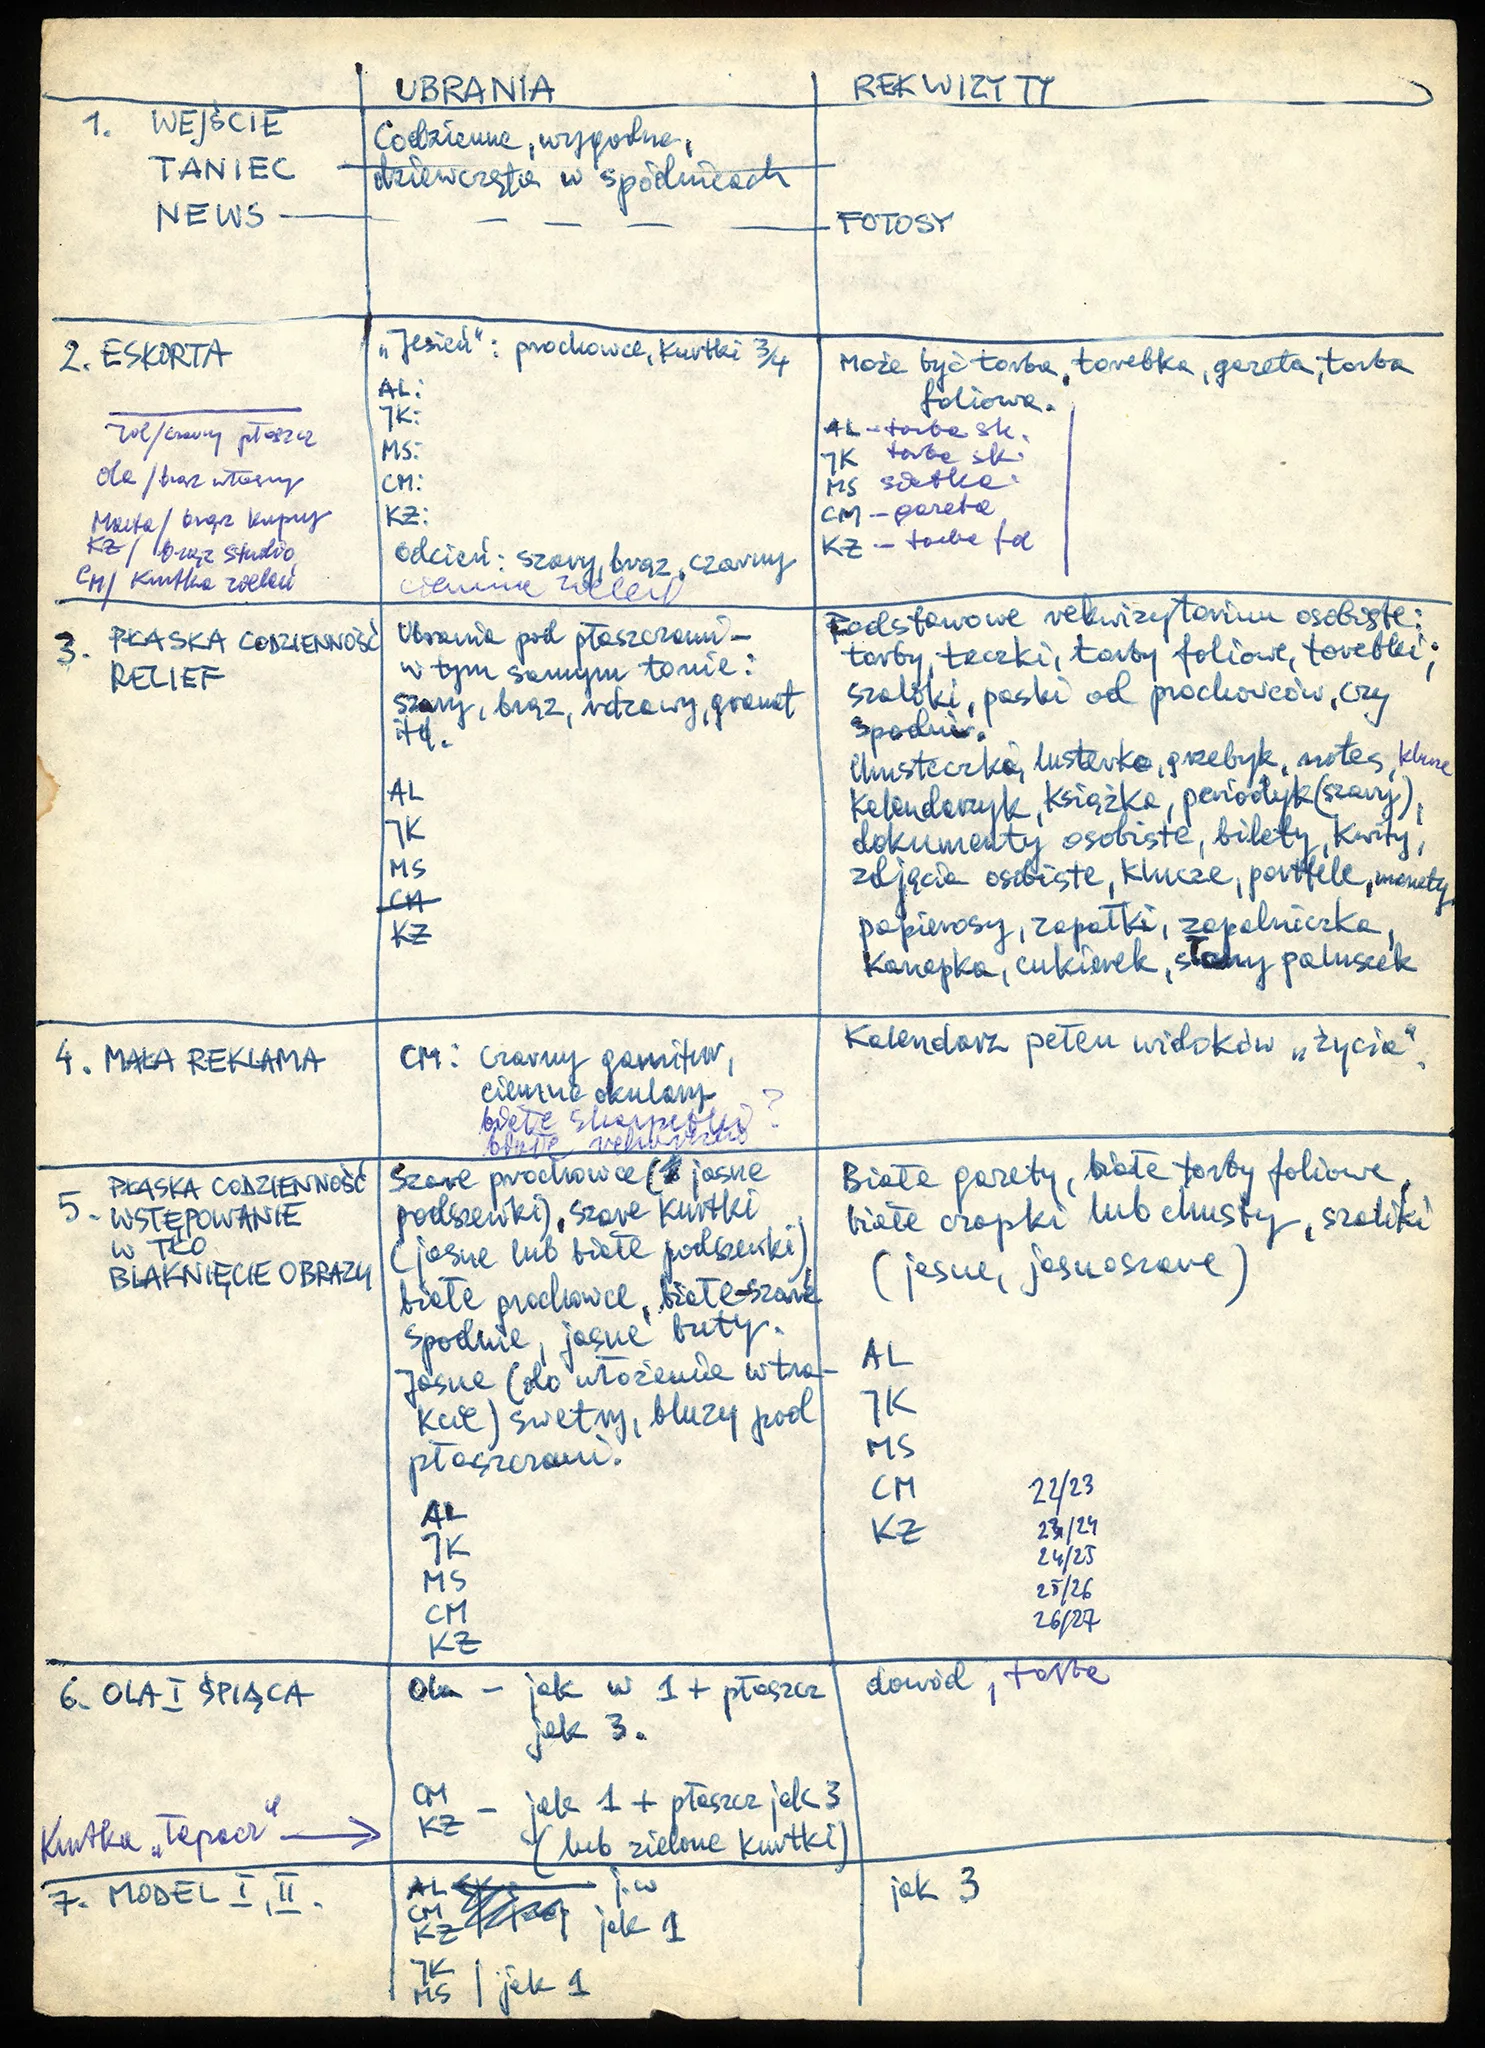 UBRANIA
REKWIZYTY
1. WEJŚCIE
TANIEC
NEWS
Codzienne, wygodne,
dziewczęta w spódnicach
FOTOSY
2. ESKORTA
/czarny płaszcz
Ola / brąz własny
Marta / brąz kupny
KZ / brąz studio
CM / Kurtka zieleń
„Jesień": prochowce, kurtki 3/4
AL:
JK:
MS:
CM:
KZ:
Odcień: szary, brąz, czarny
ciemna zieleń
Może być torba, torebka, gazeta, torba
foliowa.
AL – torba sk.
JK torba sk.
MS siatka
CM – gazeta
KZ – torba fol
3. PŁASKA CODZIENNOŚĆ
RELIEF
Ubrania pod płaszczami –
w tym samym tonie:
szary, brąz, rdzawy, granat
itd.
AL
JK
MS
CM
KZ
Podstawowe rekwizytarium osobiste:
torby, teczki, torby foliowe, torebki;
szaliki, paski od prochowców, czy
spodni.
Chusteczka, lusterko, grzebyk, notes, klucze
Kalendarzyk, książka, periodyk (szary),
dokumenty osobiste, bilety, kwity,
zdjęcia osobiste, klucze, portfele, monety
papierosy, zapałki, zapalniczka,
Kanapka, cukierek, słony paluszek
4. MAŁA REKLAMA
CM: czarny garnitur,
ciemne okulary
białe skarpetki ?
białe
Kalendarz pełen widoków „życia".
5. PŁASKA CODZIENNOŚĆ
WSTĘPOWANIE
W TŁO
BLAKNIĘCIE OBRAZU
Szare prochowce ( jasne
podszewki), szare kurtki
(jasne lub białe podszewki)
białe prochowce, białe-szare
spodnie, jasne buty.
Jasne (do włożenia w tra-
kcie) swetry, bluzy pod
płaszczami.
AL
JK
MS
CM
KZ
Białe gazety, białe torby foliowe,
białe czapki lub chusty, szaliki
(jasne, jasnoszare)
AL
JK
MS
CM 22/23
KZ 23/24
24/25
25/26
26/27
6. OLA I ŚPIĄCA
Ola – jak w 1 + płaszcz
jak 3.
CM
KZ – jak 1 + płaszcz jak 3
(lub zielone kurtki)
dowód, torba
Kurtka „Tapacz"
7. MODEL I, II.
AL j.w
CM
KZ jak 1
JK
MS | jak 1
jak 3